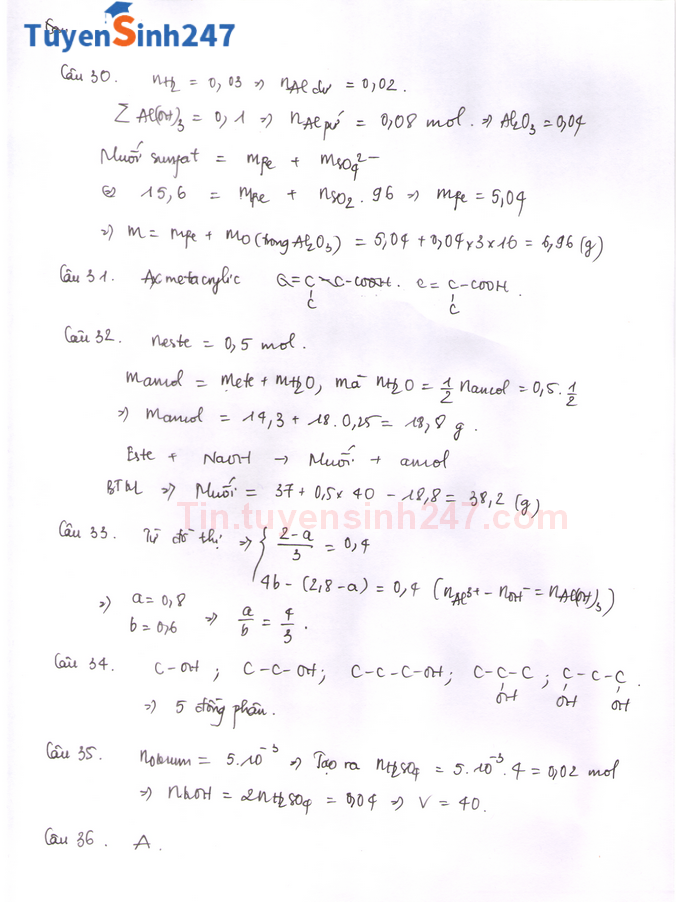 TuyenSinh247
Câu 30. nH2 = 0,03 => nAl dư = 0,02.
Σ Al(OH)3 = 0,1 => nAl pứ = 0,08 mol. => Al2O3 = 0,04
Muối sunfat = mFe + mSO4²⁻
15,6 = mFe + nSO2 . 96 => mFe = 5,04
=> m = mFe + mO (trong Al2O3) = 5,04 + 0,04 x 3 x 16 = 6,96 (g)
Câu 31. Ax metacrylic C=C-C-COOH. C=C-COOH.
C C
Câu 32. neste = 0,5 mol.
mancol = mete + mH2O, mà nH2O = 1/2 nancol = 0,5 . 1/2
=> mancol = 14,3 + 18. 0,25 = 18,8 g.
Este + NaOH → Muối + ancol
BTKL => Muối = 37 + 0,5 x 40 - 18,8 = 38,2 (g)
Tin.tuyensinh247.com
Câu 33. Từ đồ thị => { (2-a)/3 = 0,4
4b - (2,8-a) = 0,4 (nAl³⁺ - nOH⁻ = nAl(OH)3)
=> a = 0,8
b = 0,6 => a/b = 4/3.
Câu 34. C-OH ; C-C-OH; C-C-C-OH; C-C-C ; C-C-C.
OH OH OH
=> 5 đồng phân.
Câu 35. noleum = 5.10⁻³ => Tạo ra nH2SO4 = 5.10⁻³.4 = 0,02 mol
=> nKOH = 2nH2SO4 = 0,04 => V = 40.
Câu 36. A.